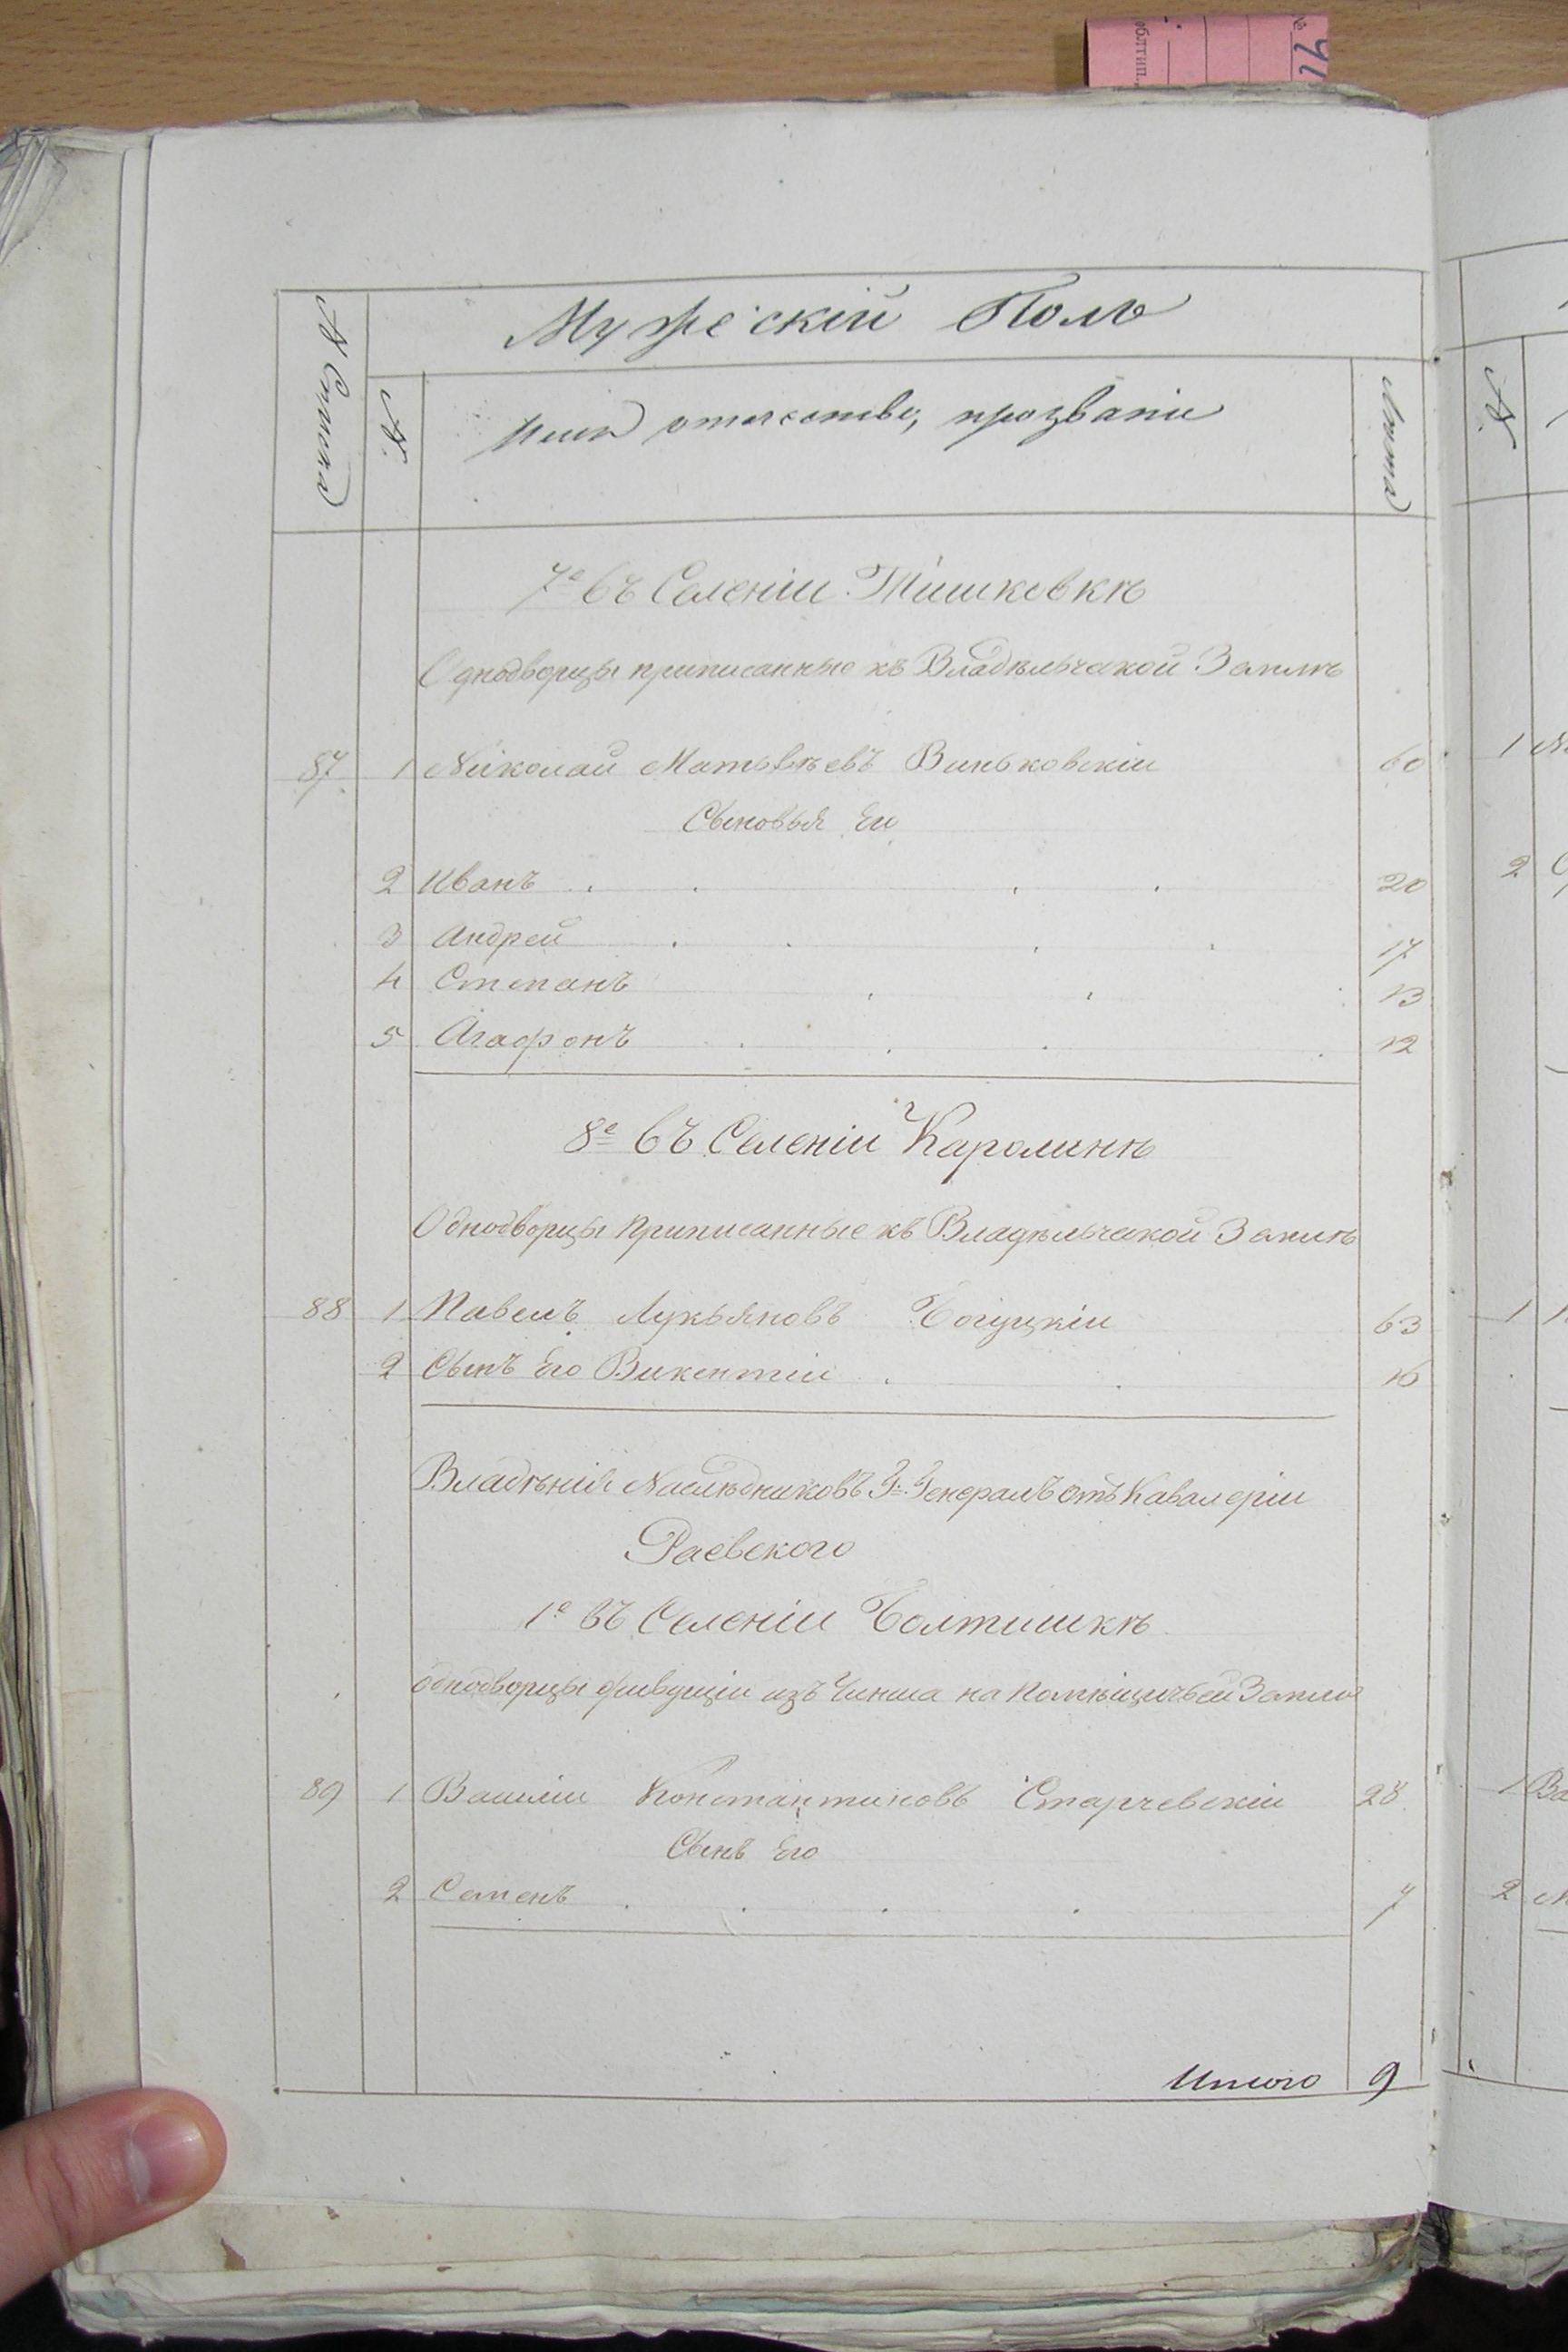 Мужескій Полъ
№ Списка
№
Имя отечество, прозваніе
Лѣта
7е въ Селеніи Тишковкѣ
Однодворцы приписанные къ Владѣльческой Землѣ
87 1 Николай Матвѣевъ Виньковскій 60
Сыновья Его
2 Иванъ 20
3 Андрей 17
4 Степанъ 13
5 Агафонъ 12
8е въ Селеніи Каролинѣ
Однодворцы приписанные къ Владѣльческой Землѣ
88 1 Павелъ Лукьяновъ Богуцкій 63
2 Сынъ Его Викентій 16
Владѣнія Наслѣдниковъ Г: Генералъ отъ Кавалеріи
Раевского
1е въ Селеніи Болтишкѣ
Однодворцы живущіи изъ Чинша на Помѣщичьей Землѣ
89 1 Василій Константиновъ Старчевскій 28
Сынъ Его
2 Семенъ 7
Итого 9